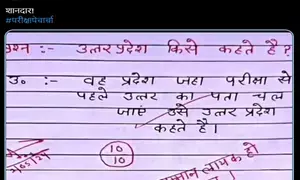 शानदार!
#परीक्षापेचर्चा
प्रश्न :- उत्तर प्रदेश किसे कहते है ?
उ० :- वह प्रदेश जहा परीक्षा से
पहले उत्तर का पता चल
जाएं उसे उत्तर प्रदेश
कहते है ।
10
10
हो